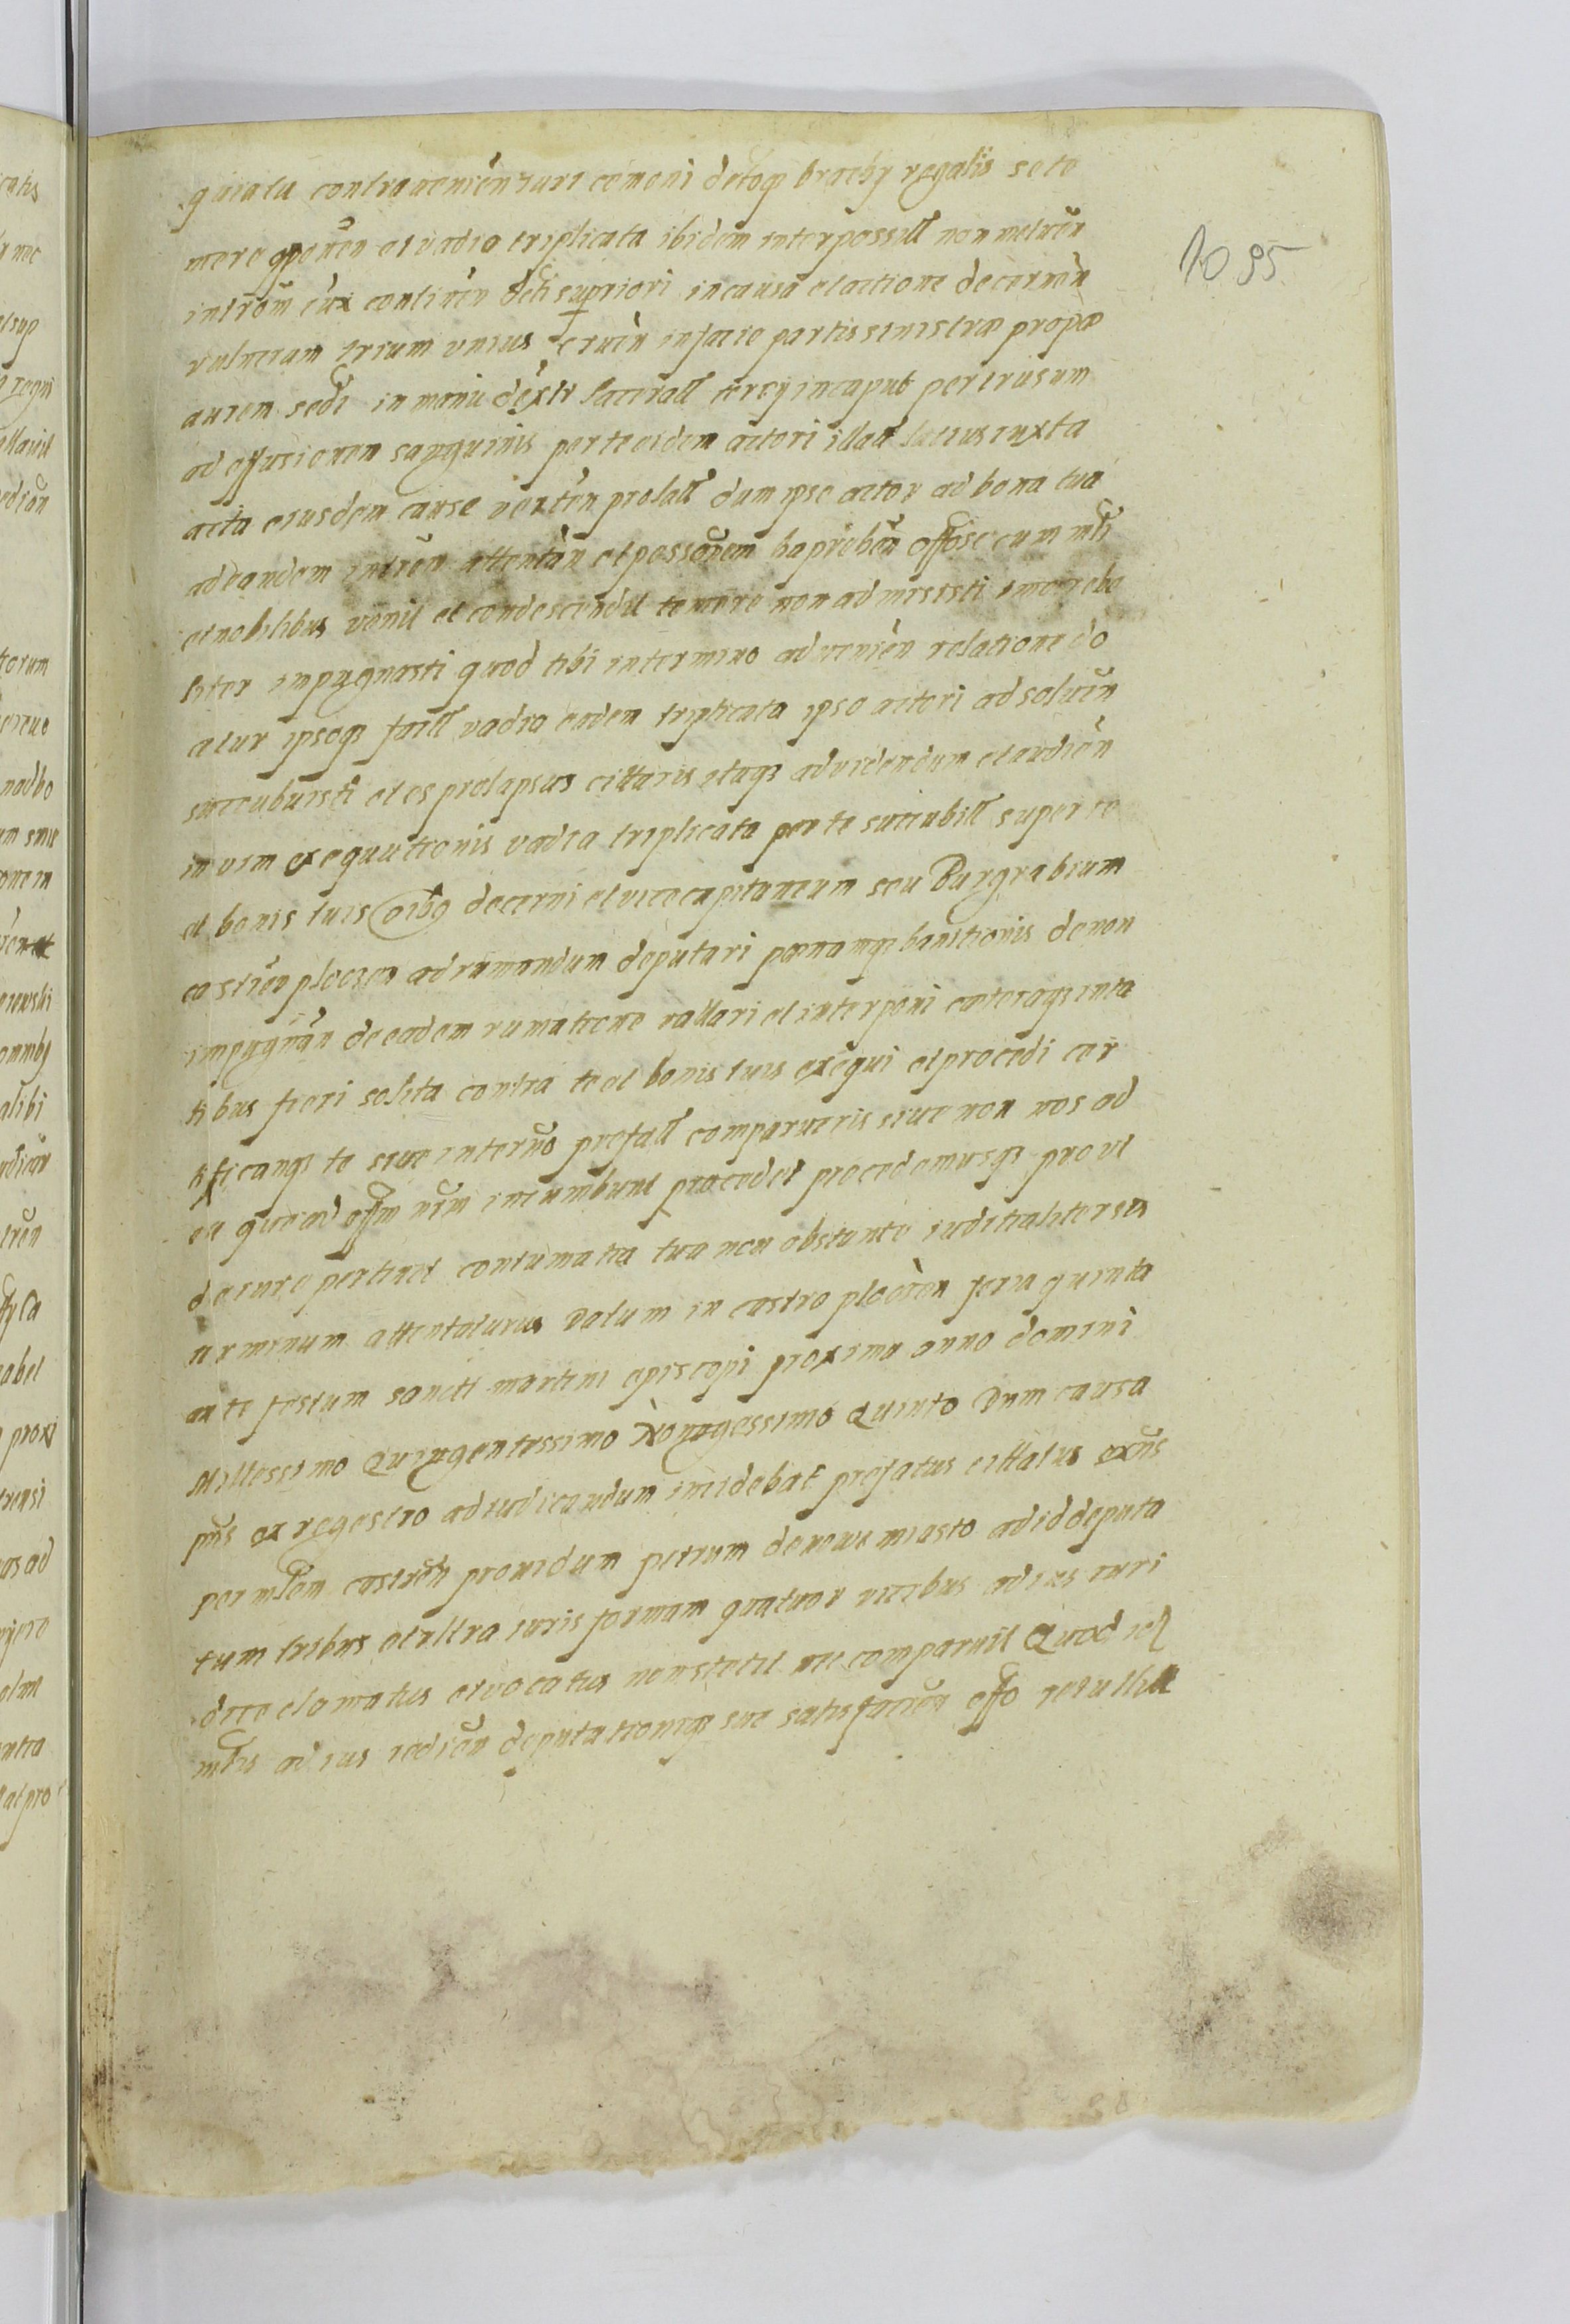 quia tu contravenien iuri cōmoni detoqʒ brachy regalis sete
mere opponen et vadio triplicata ibidem interpossitt non metuen
introm cuʒ continen superiori in causa et actione decernen
vulnerum trium unius cruen in facie partis sinistræ propæ
aurem sedi in manu dextr tercy in caput pertrusum
ad effusionem sanguinis per te eidem actori illatt latius iuxta
acta eiusdem cause verten prolatt dum ipse actor ad bona tua
ad eandem intron attentan et possonem haprehen offose cum mli
et nobilibus venit et condescendit temere non admisisti imo rebe
liter impugnasti quod tibi in termino advenien relatione do
atur ipsoqʒ facll vadia eadem triplicata ipso actori ad solven
succubuisti et es prolapsus cittaris etaqʒ ad videndum et audien
in vim exequutionis vadia triplicata per te succubitt super te
et bonis tuis oibq decerni et vicecapitaneum seu Burgrabium
castren plocen ad rumandum deputari pœnamqʒ banitionis de non
impugnan de eadem rumatione vallari et interponi cæteraqʒ inta
libus fieri solita contra te et bonis tuis exequi et procedi cer
tificanqʒ te sive in termo prefatt comparueris siue non nos ad
ea quæ ad offm nrm incumbunt procedet procedemusqʒ prout
de iure pertinet contumatia tua non obstante iuditialiter sis
terminum attentaturus Datum in castro plocien feria quinta
ante festum sancti martini episcopi proxima anno domini
Millessimo Quingentessimo Nonagessimo Quinto Dum causa
pns ex regestro ad iudicandum incidebat prefatus cittatus exns
per mlem castren providum petrum denowe miasto ad id deputa
tum tribus et ultra iuris formam quatuor vicibus ad ius iuri
dice clamatus et vocatus non stetit nec comparuit Quod id
mlis ad ius redien deputationiqʒ suæ satisfacien offo retullit
1095